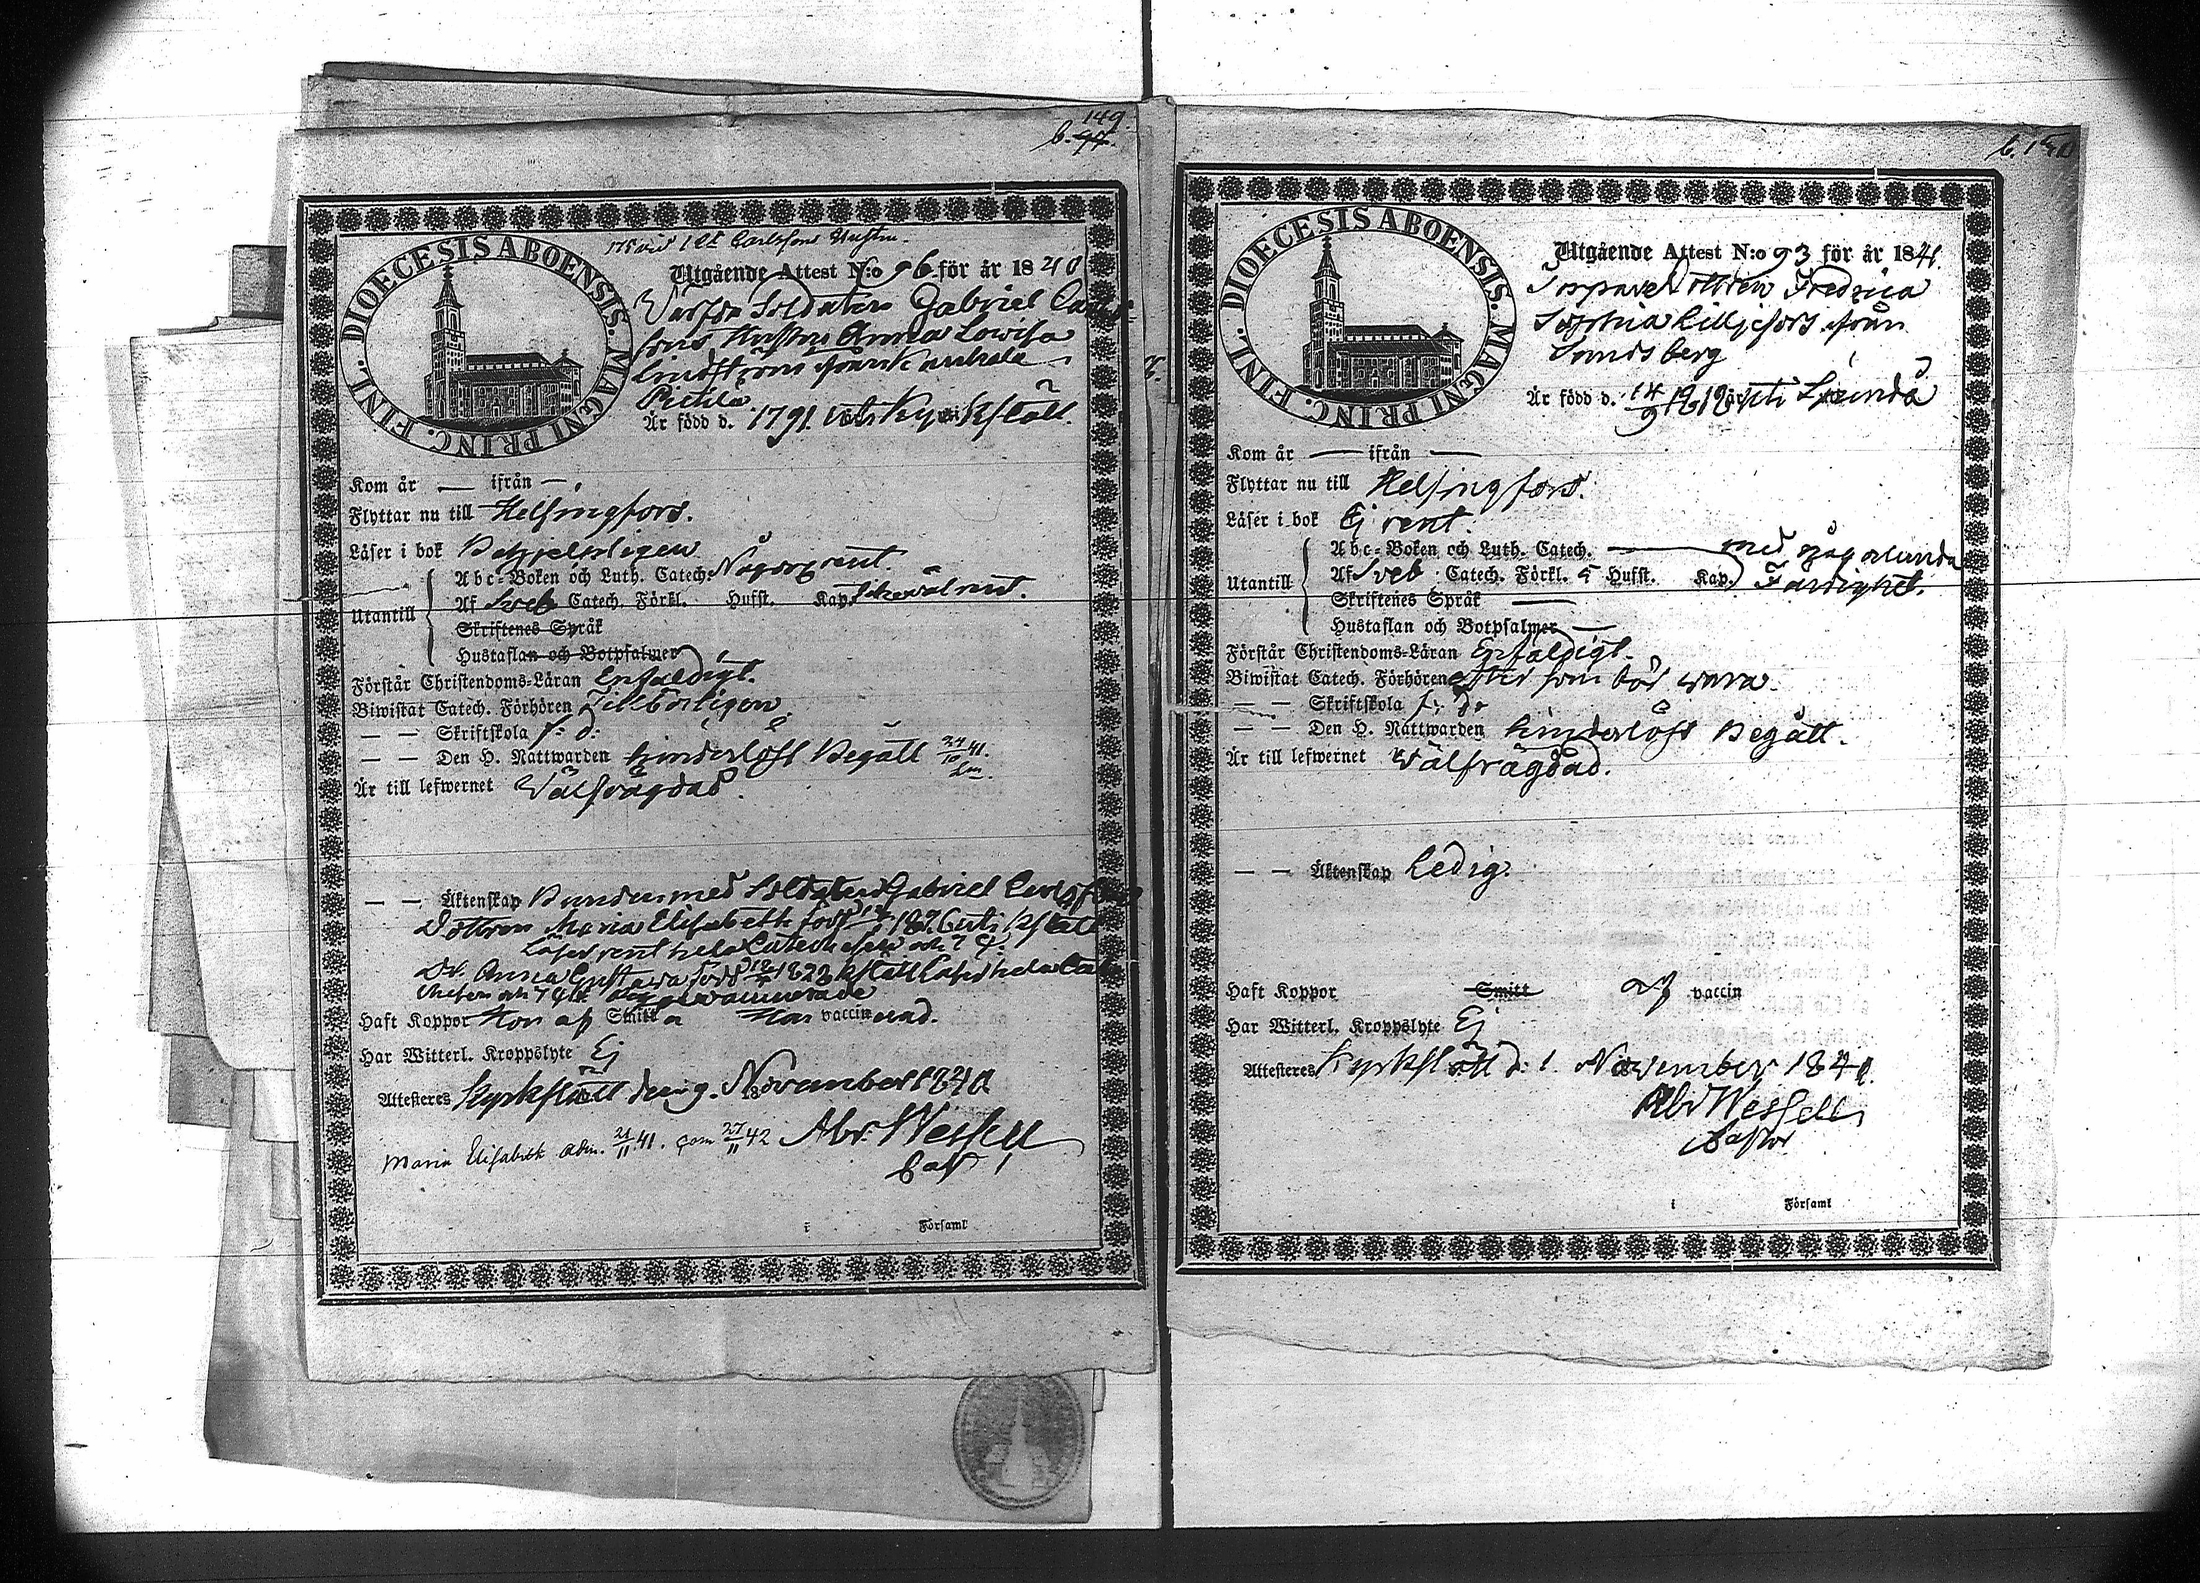 149
b. 97.
DIOECESIS ABOENSIS. MAGNI PRINC. FINL.
Carlssons Hustru.
Utgående Attest N:o 96 för år 1840
Soldaten Gabriel
sons Hustru Anna Lowisa
Lindström från
Är född d. 1791. uti Kyrkslätt.
Kom år — ifrån —.
Flyttar nu till Helsingfors.
Läser i bok Begripeligen
Utantill
Abc-Boken och Luth. Catech. Någorp rent.
Af Sveb Catech. Förkl. Hufst. Kap.
Skriftenes Språk
Hustaflan och Botpsalmer
Förstår Christendoms-Läran Enfaldigt.
Biwistat Catech. Förhören Tilbörligen
— — Skriftskola s. d.
— — Den H. Nattwarden hinderlöst Begått 24/10 41.
Är till lefwernet Wälfrägdad.
— — Äktenskap Bunden med Soldaten Gabriel
Dottren Maria Elisabeth född uti Kslätt
Läser rent hela Catechesen och
Dr. Anna Gustava född 1823 Kslätt Läser hela
Haft Koppor Hon af Smitta Har vaccinerad.
Har Witterl. Kroppslyte Ej
Attesteres Kyrkslätt den 9. November 1840
Maria Elisabeth adm. 21/11 41. 27/11 42 Abr. Wessell
i Församl
b. 150
DIOECESIS ABOENSIS. MAGNI PRINC. FINL.
Utgående Attest N:o 93 för år 1841.
Torpare Dottren Fredrica
Sophia Lilljefors från
Sundsberg
Är född d. 14/9 1818 uti Sjundå
Kom år — ifrån —
Flyttar nu till Helsingfors.
Läser i bok Ej rent.
Utantill
Abc-Boken och Luth. Catech. — med någorlunda
Af Sveb Catech. Förkl. 5 Hufst. Kap. Färdighet.
Skriftenes Språk —
Hustaflan och Botpsalmer —
Förstår Christendoms-Läran Enfaldigt.
Biwistat Catech. Förhören efter som bör wara.
— — Skriftskola s. d.
— — Den H. Nattwarden hinderlöst Begått.
Är till lefwernet Wälfrägdad.
— — Äktenskap Ledig.
Haft Koppor Smitt af vaccin
Har Witterl. Kroppslyte Ej
Attesteres Kyrkslätt d. 1. November 1841.
Abr Wessell
Pastor
i Församl